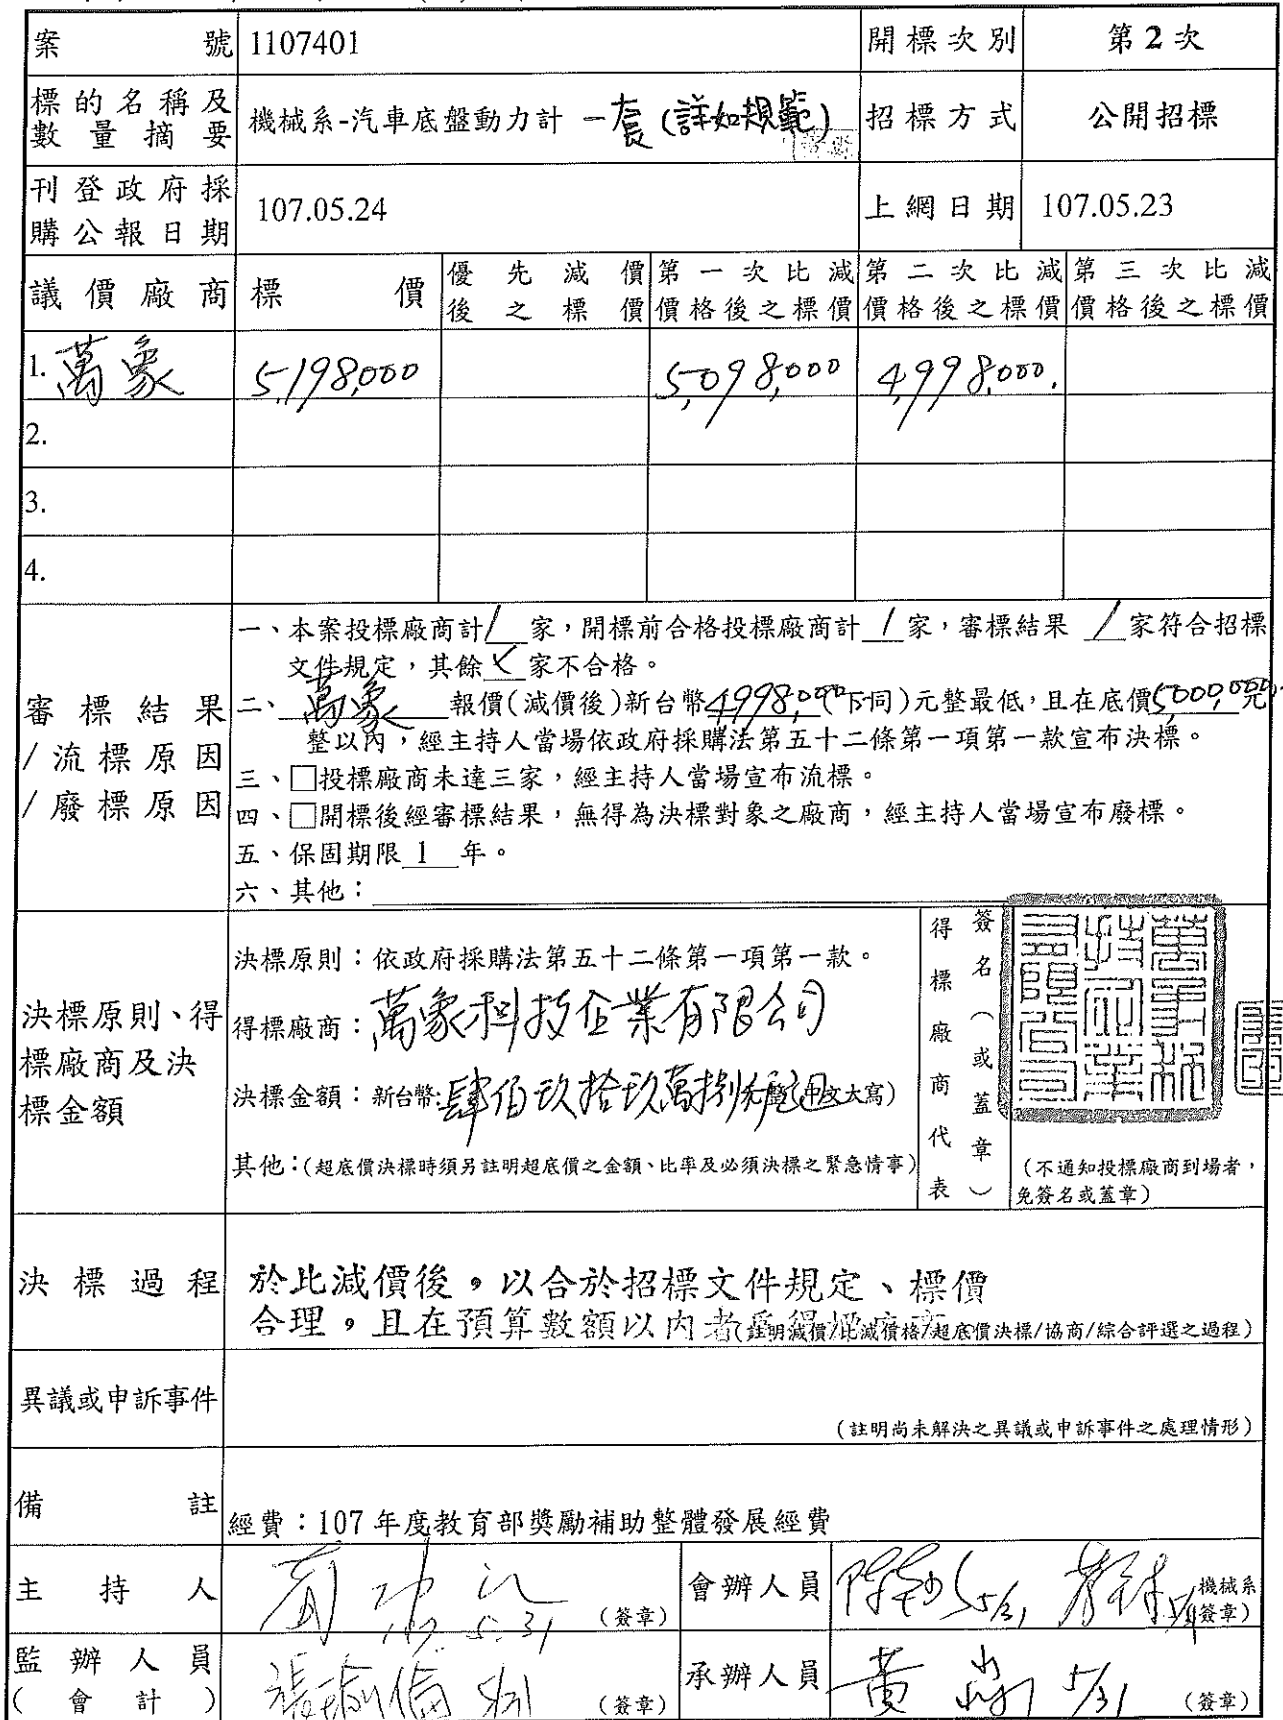 案號 1107401 開標次別 第2次
標的名稱及數量摘要 機械系-汽車底盤動力計 一套(詳如規範) 招標方式 公開招標
刊登政府採購公報日期 107.05.24 上網日期 107.05.23
議價廠商 標價 優先減價後之標價 第一次比減價格後之標價 第二次比減價格後之標價 第三次比減價格後之標價
1. 萬象 5,198,000 5,098,000 4,998,000.
2.
3.
4.
審標結果/流標原因/廢標原因
一、本案投標廠商計1家,開標前合格投標廠商計1家,審標結果1家符合招標
文件規定,其餘 家不合格。
二、萬象 報價(減價後)新台幣4,998,000(下同)元整最低,且在底價5,000,000元
整以內,經主持人當場依政府採購法第五十二條第一項第一款宣布決標。
三、□投標廠商未達三家,經主持人當場宣布流標。
四、□開標後經審標結果,無得為決標對象之廠商,經主持人當場宣布廢標。
五、保固期限 1 年。
六、其他:
決標原則、得標廠商及決標金額
決標原則:依政府採購法第五十二條第一項第一款。
得標廠商:萬象科技企業有限公司
決標金額:新台幣:肆佰玖拾玖萬捌仟元整(中文大寫)
其他:(超底價決標時須另註明超底價之金額、比率及必須決標之緊急情事)
得標廠商代表
簽名(或蓋章)
萬象科技企業有限公司
(不通知投標廠商到場者,
免簽名或蓋章)
決標過程
於比減價後,以合於招標文件規定、標價
合理,且在預算數額以內者為得標廠商
(註明減價/比減價格/超底價決標/協商/綜合評選之過程)
異議或申訴事件
(註明尚未解決之異議或申訴事件之處理情形)
備註
經費:107 年度教育部獎勵補助整體發展經費
主持人 5.31 (簽章) 會辦人員 5/31 機械系
(簽章)
監辦人員
(會計) 5/31 (簽章) 承辦人員 黃 5/31 (簽章)